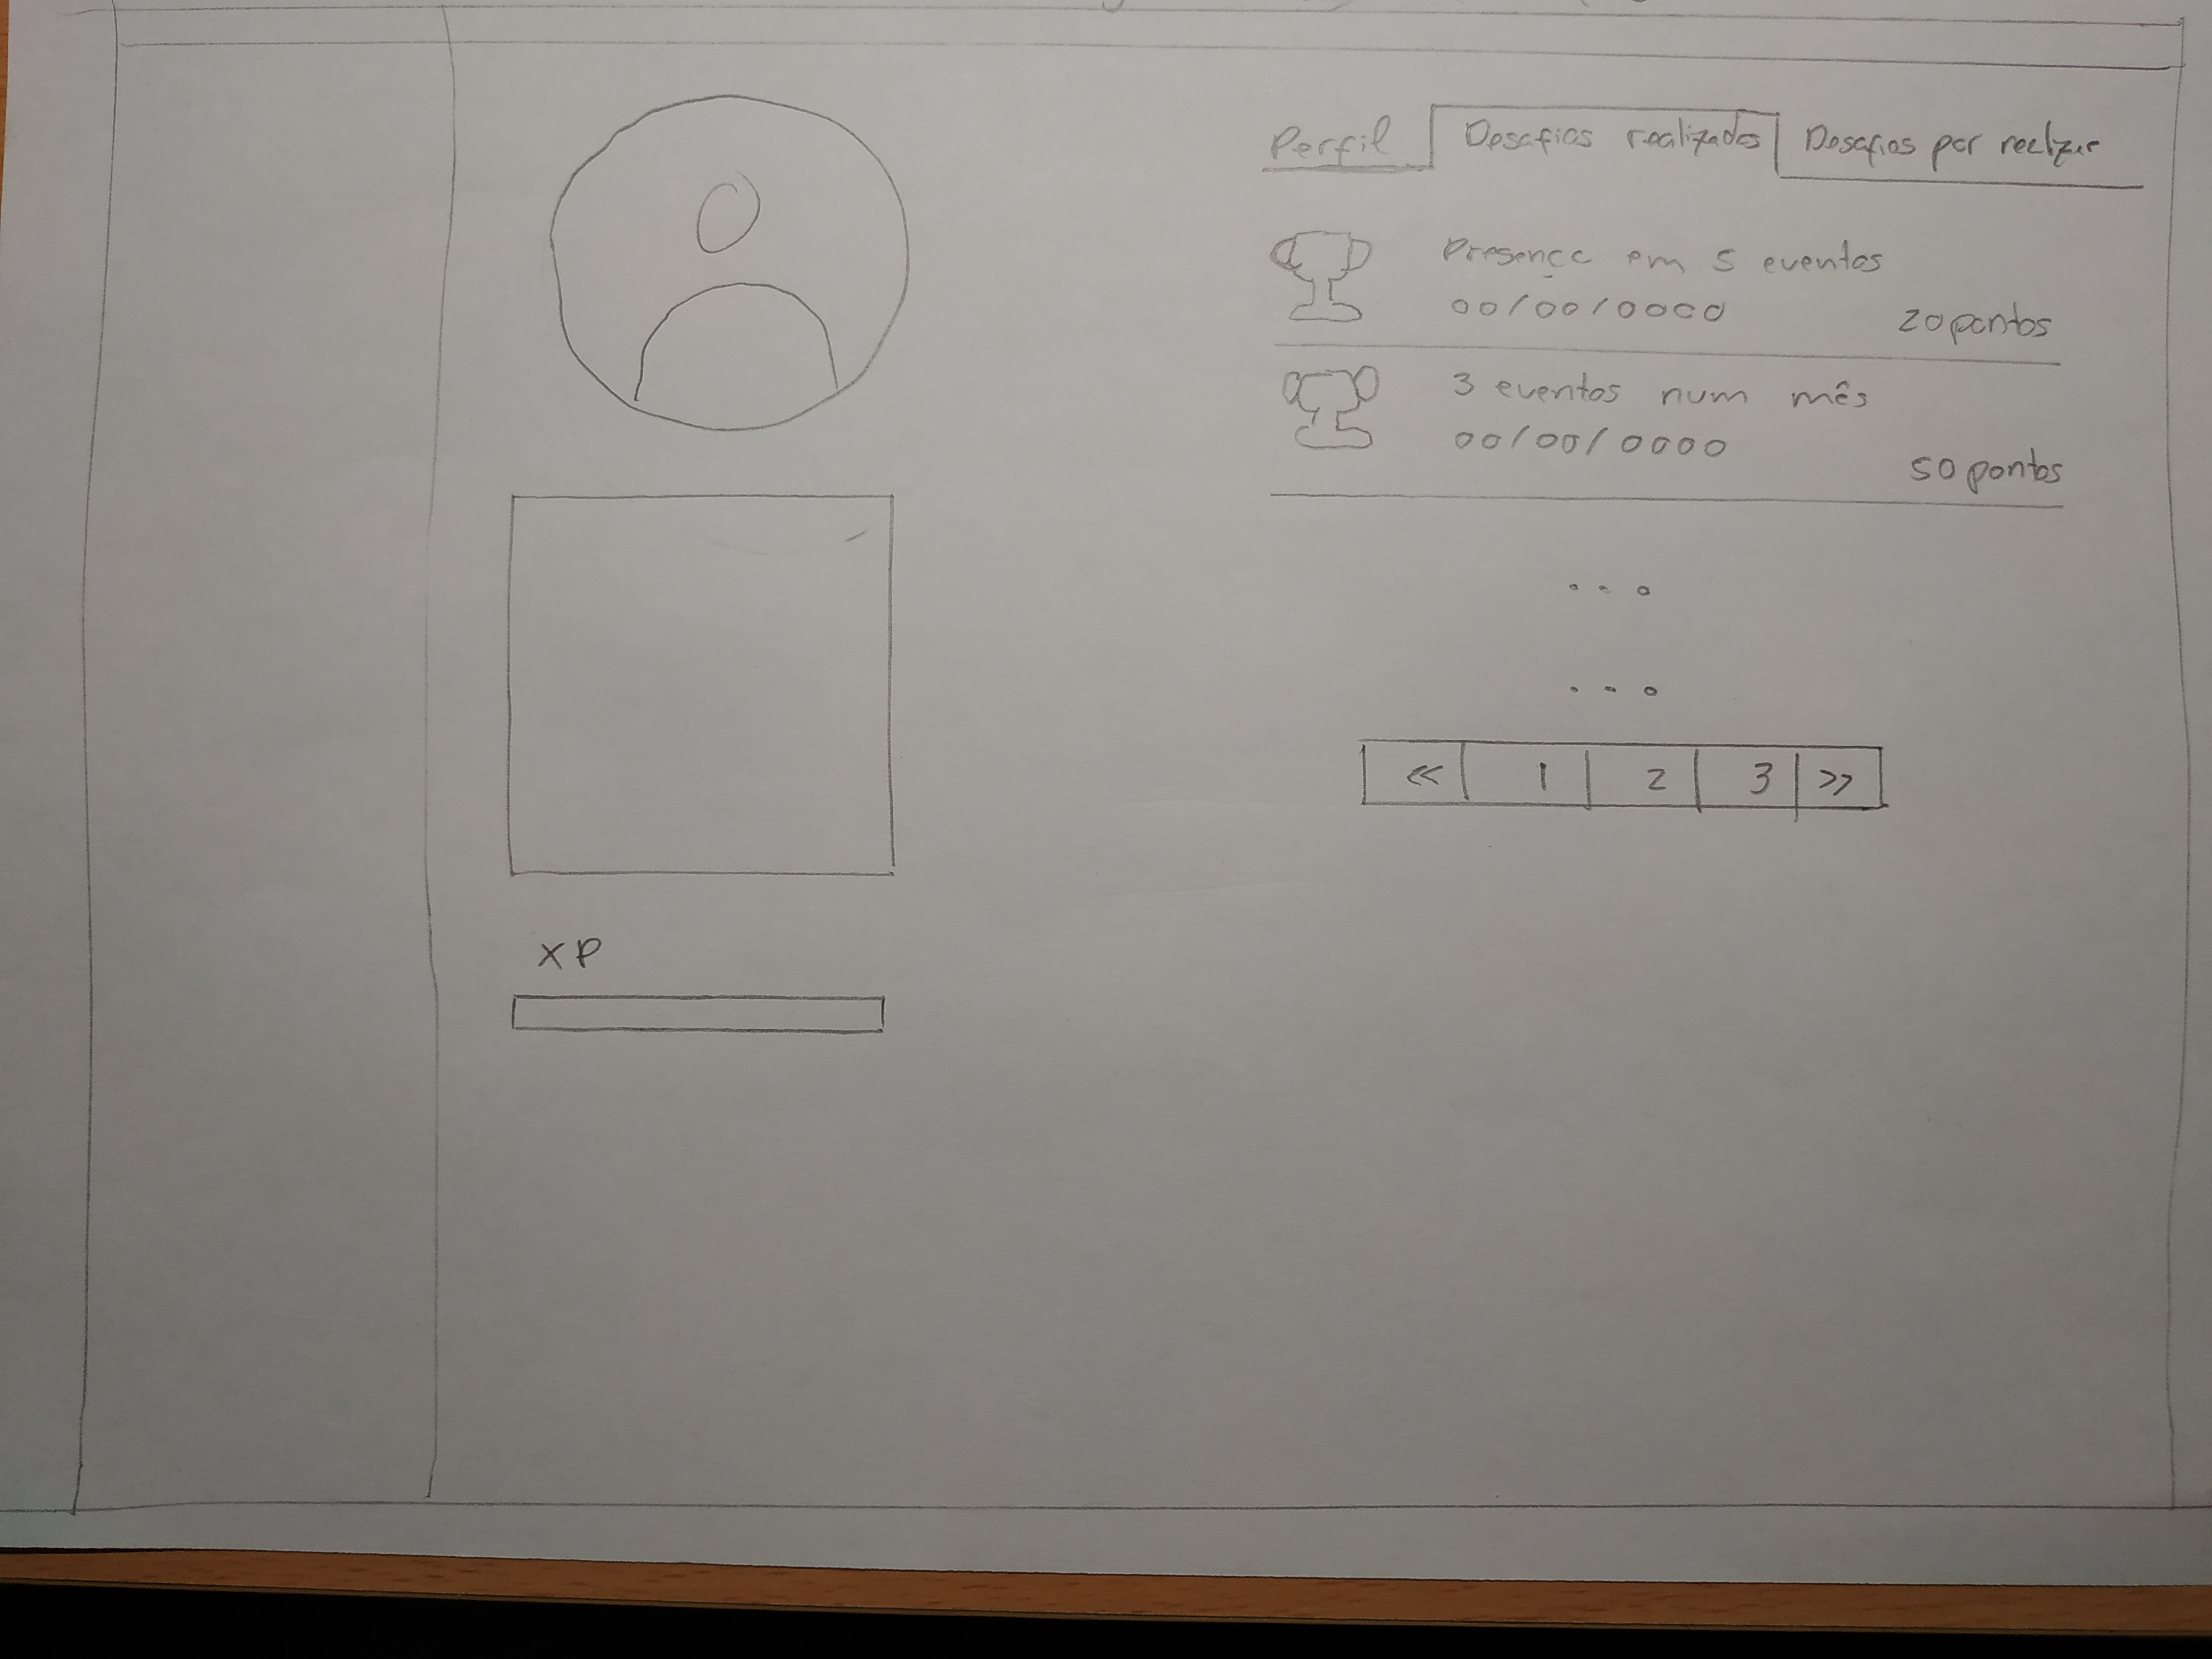 Perfil
Desafios realizados
Desafios por realizar
Presença em 5 eventos
00/00/0000
20 pontos
3 eventos num mês
00/00/0000
50 pontos
...
...
<< 1 2 3 >>
XP